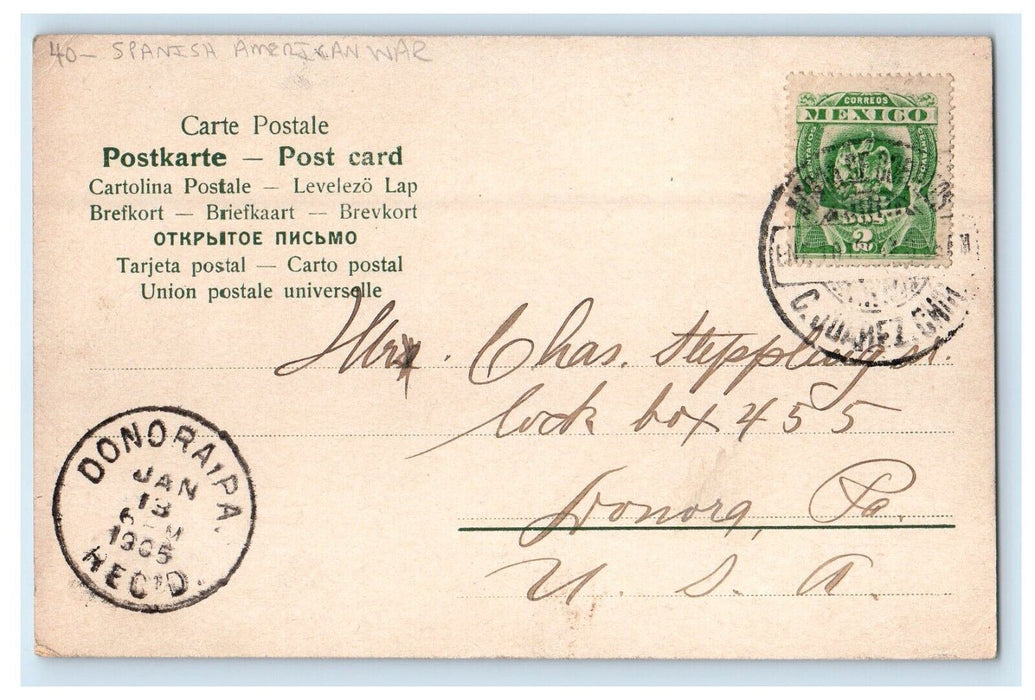 40- SPANISH AMERICAN WAR
Carte Postale
Postkarte — Post card
Cartolina Postale — Levelező Lap
Brefkort — Briefkaart — Brevkort
ОТКРЫТОЕ ПИСЬМО
Tarjeta postal — Carto postal
Union postale universelle
CORREOS
MEXICO
CENTAVOS
2
C. JUAREZ, CHIH
Chas.
lock box 455
Donora, Pa.
U. S. A.
DONORA, PA.
JAN
13
1905
REC'D.